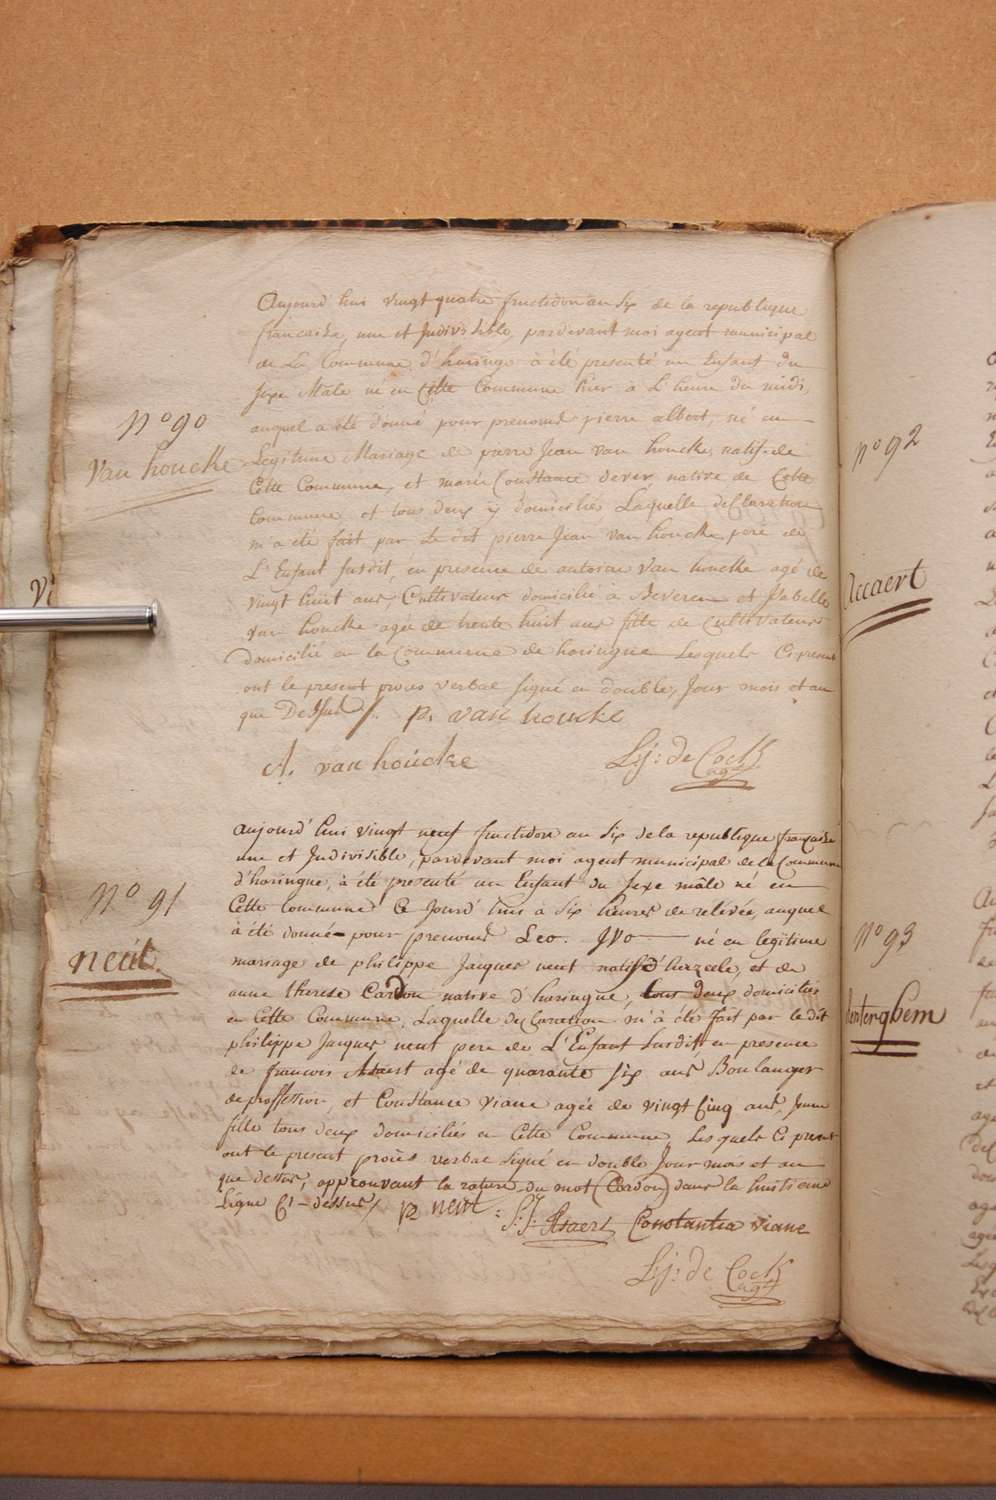 Aujourd'hui vingt quatre fructidor an Six de la republique
francaise, une et Indivisible, pardevant moi agent municipal
de La Commune d'haringe à été presenté un Enfant du
Sexe Male né en Cette Commune hier à L'heure du midi,
auquel a été donné pour prenoms pierre albert, né en
nº 90
Van houcke
Legitime Mariage de pierre Jean van houcke, natif de
Cette Commune, et marie Constance dever, native de Cette
Commune et tous deux y domiciliés Laquelle declaration
m'a été fait par Le dit pierre Jean van houcke pere de
L'Enfant Susdit, en presence de antoine van houcke agé de
vingt huit ans, Cultivateur domicilié à Beveren et Isabelle
van houcke agée de trente huit ans fille de Cultivateurs
domicilié en la Commune de haringue Lesquels Ci present
ont le present proces verbal signé en double, Jour mois et an
que Dessus /. P. van houcke
A. van houcke
L: J: de Cock
agt
aujourd'hui vingt neuf fructidor an Six de la republique française
une et Indivisible, pardevant moi agent municipal de la Commune
d'haringue, à été presenté un Enfant du Sexe mâle né en
nº 91
neut.
Cette commune Ce Jourd'hui à Six heures de relevée, auquel
à été donné pour prenoms Leo. Ivo né en legitime
mariage de philippe Jacques neut natif d'herzeele, et de
anne therese Cardon native d'haringue, tous deux domiciliés
en Cette Commune, Laquelle declaration m'à été fait par le dit
philippe Jacques neut pere de L'Enfant Susdit, en presence
de francois Asaert agé de quarante Six ans Boulanger
de proffession, et Constance Viane agée de vingt Cinq ans, Jeune
fille tous deux domiciliés en Cette Commune, Lesquels Ci present
ont le present procès verbal Signé en double Jour mois et an
que dessus, approuvant la rature du mot (Cardon) dans la huitieme
Ligne Ci-dessus /. P neut
Asaert Constantia Viane
L: J: de Cock
agt
nº 92
Accaert
nº 93